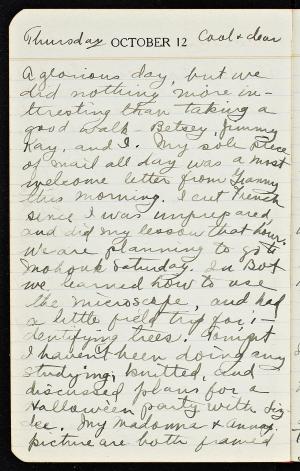 Thursday OCTOBER 12 Cool & clear
A glorious day, but we
did nothing more in-
teresting than taking a
good walk - Betsey, Jimmy
Kay, and I. My sole piece
of mail all day was a most
welcome letter from
this morning. I cut French
since I was unprepared,
and did my lesson that hour.
We are planning to go to
Mohonk Saturday. In Bot
we learned how to use
the microscope, and had
a little field trip for i-
dentifying trees. Tonight
I haven't been doing any
studying, knitted, and
discussed plans for a
Halloween party with
Lee. My madonna &
picture are both framed